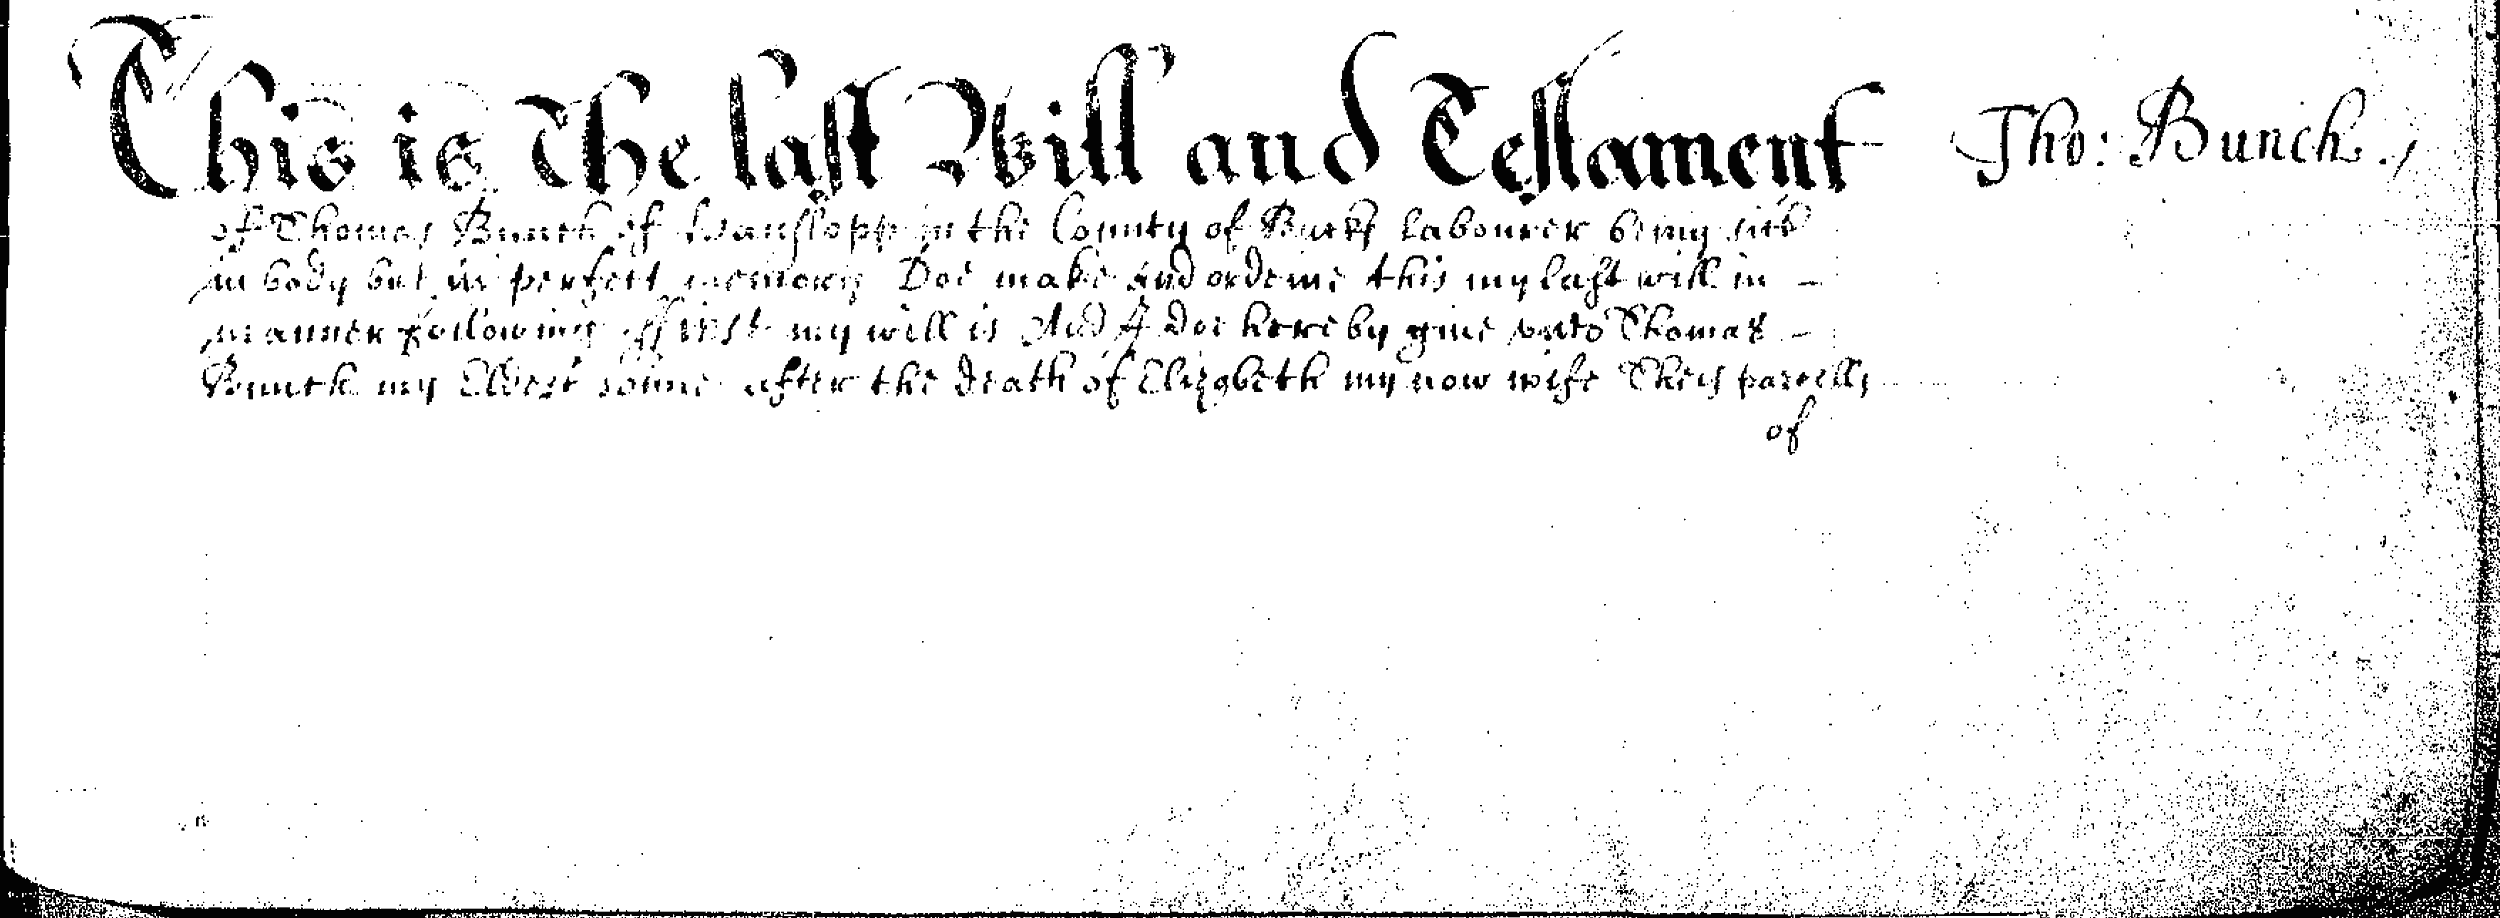 This is The last Will and Testament Tho: Bunch
of Thomas Bunch of Hanslopp in the County of Bucks Labourer being sick
in body but in perfect memory Doe make and ordeine this my last will in
manner following ffirst my will is And I doe hereby give unto Thomas
Bunch my Eldest sonne after the death of Elizabeth my now wife Theis parcells
of